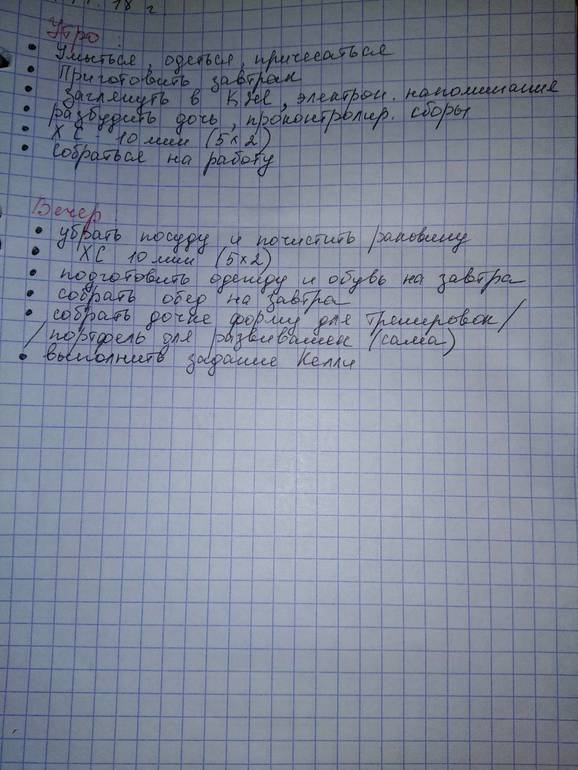 18 г
Утро :
• Умыться, одеться, причесаться
• Приготовить завтрак
• Заглянуть в КЖ, электрон. напоминание
• разбудить дочь, проконтролир. сборы
• ХС 10 мин (5х2)
• собраться на работу
Вечер :
• убрать посуду и почистить раковину
• ХС 10 мин (5х2)
• подготовить одежду и обувь на завтра
• собрать обед на завтра
• собрать дочке форму для тренировок/
/портфель для развивашек (сама)
• выполнить задание Келли